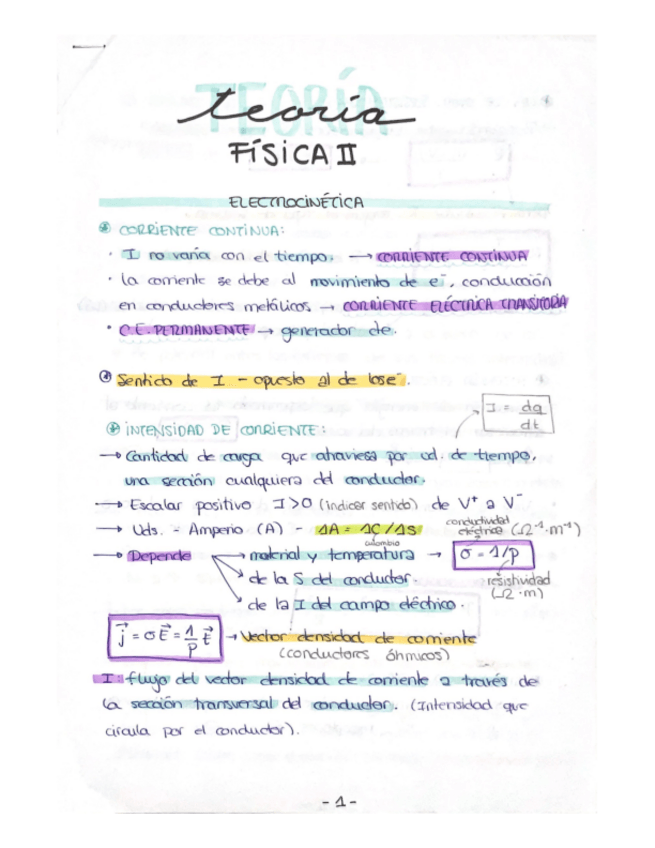 TEORÍA
teoría
FÍSICA II
ELECTROCINÉTICA
CORRIENTE CONTINUA:
· I no varía con el tiempo. → CORRIENTE CONTINUA
· La corriente se debe al movimiento de e⁻, conducción
en conductores metálicos → CORRIENTE ELÉCTRICA TRANSITORIA
· C.E. PERMANENTE → generador de.
Sentido de I - opuesto al de los e⁻.
I = dq/dt
INTENSIDAD DE CORRIENTE:
→ Cantidad de carga que atraviesa por ud. de tiempo,
una sección cualquiera del conductor.
→ Escalar positivo I>0 (indicar sentido) de V⁺ a V⁻
→ Uds. - Amperio (A) - 1A = 1C/1S
culombio
conductividad eléctrica (Ω⁻¹·m⁻¹)
→ Depende → material y temperatura → σ = 1/ρ
de la S del conductor.
resistividad (Ω·m)
de la I del campo eléctrico.
j⃗ = σE⃗ = 1/ρ E⃗ → Vector densidad de corriente
(conductores óhmicos)
I: flujo del vector densidad de corriente a través de
la sección transversal del conductor. (Intensidad que
circula por el conductor).
- 1 -